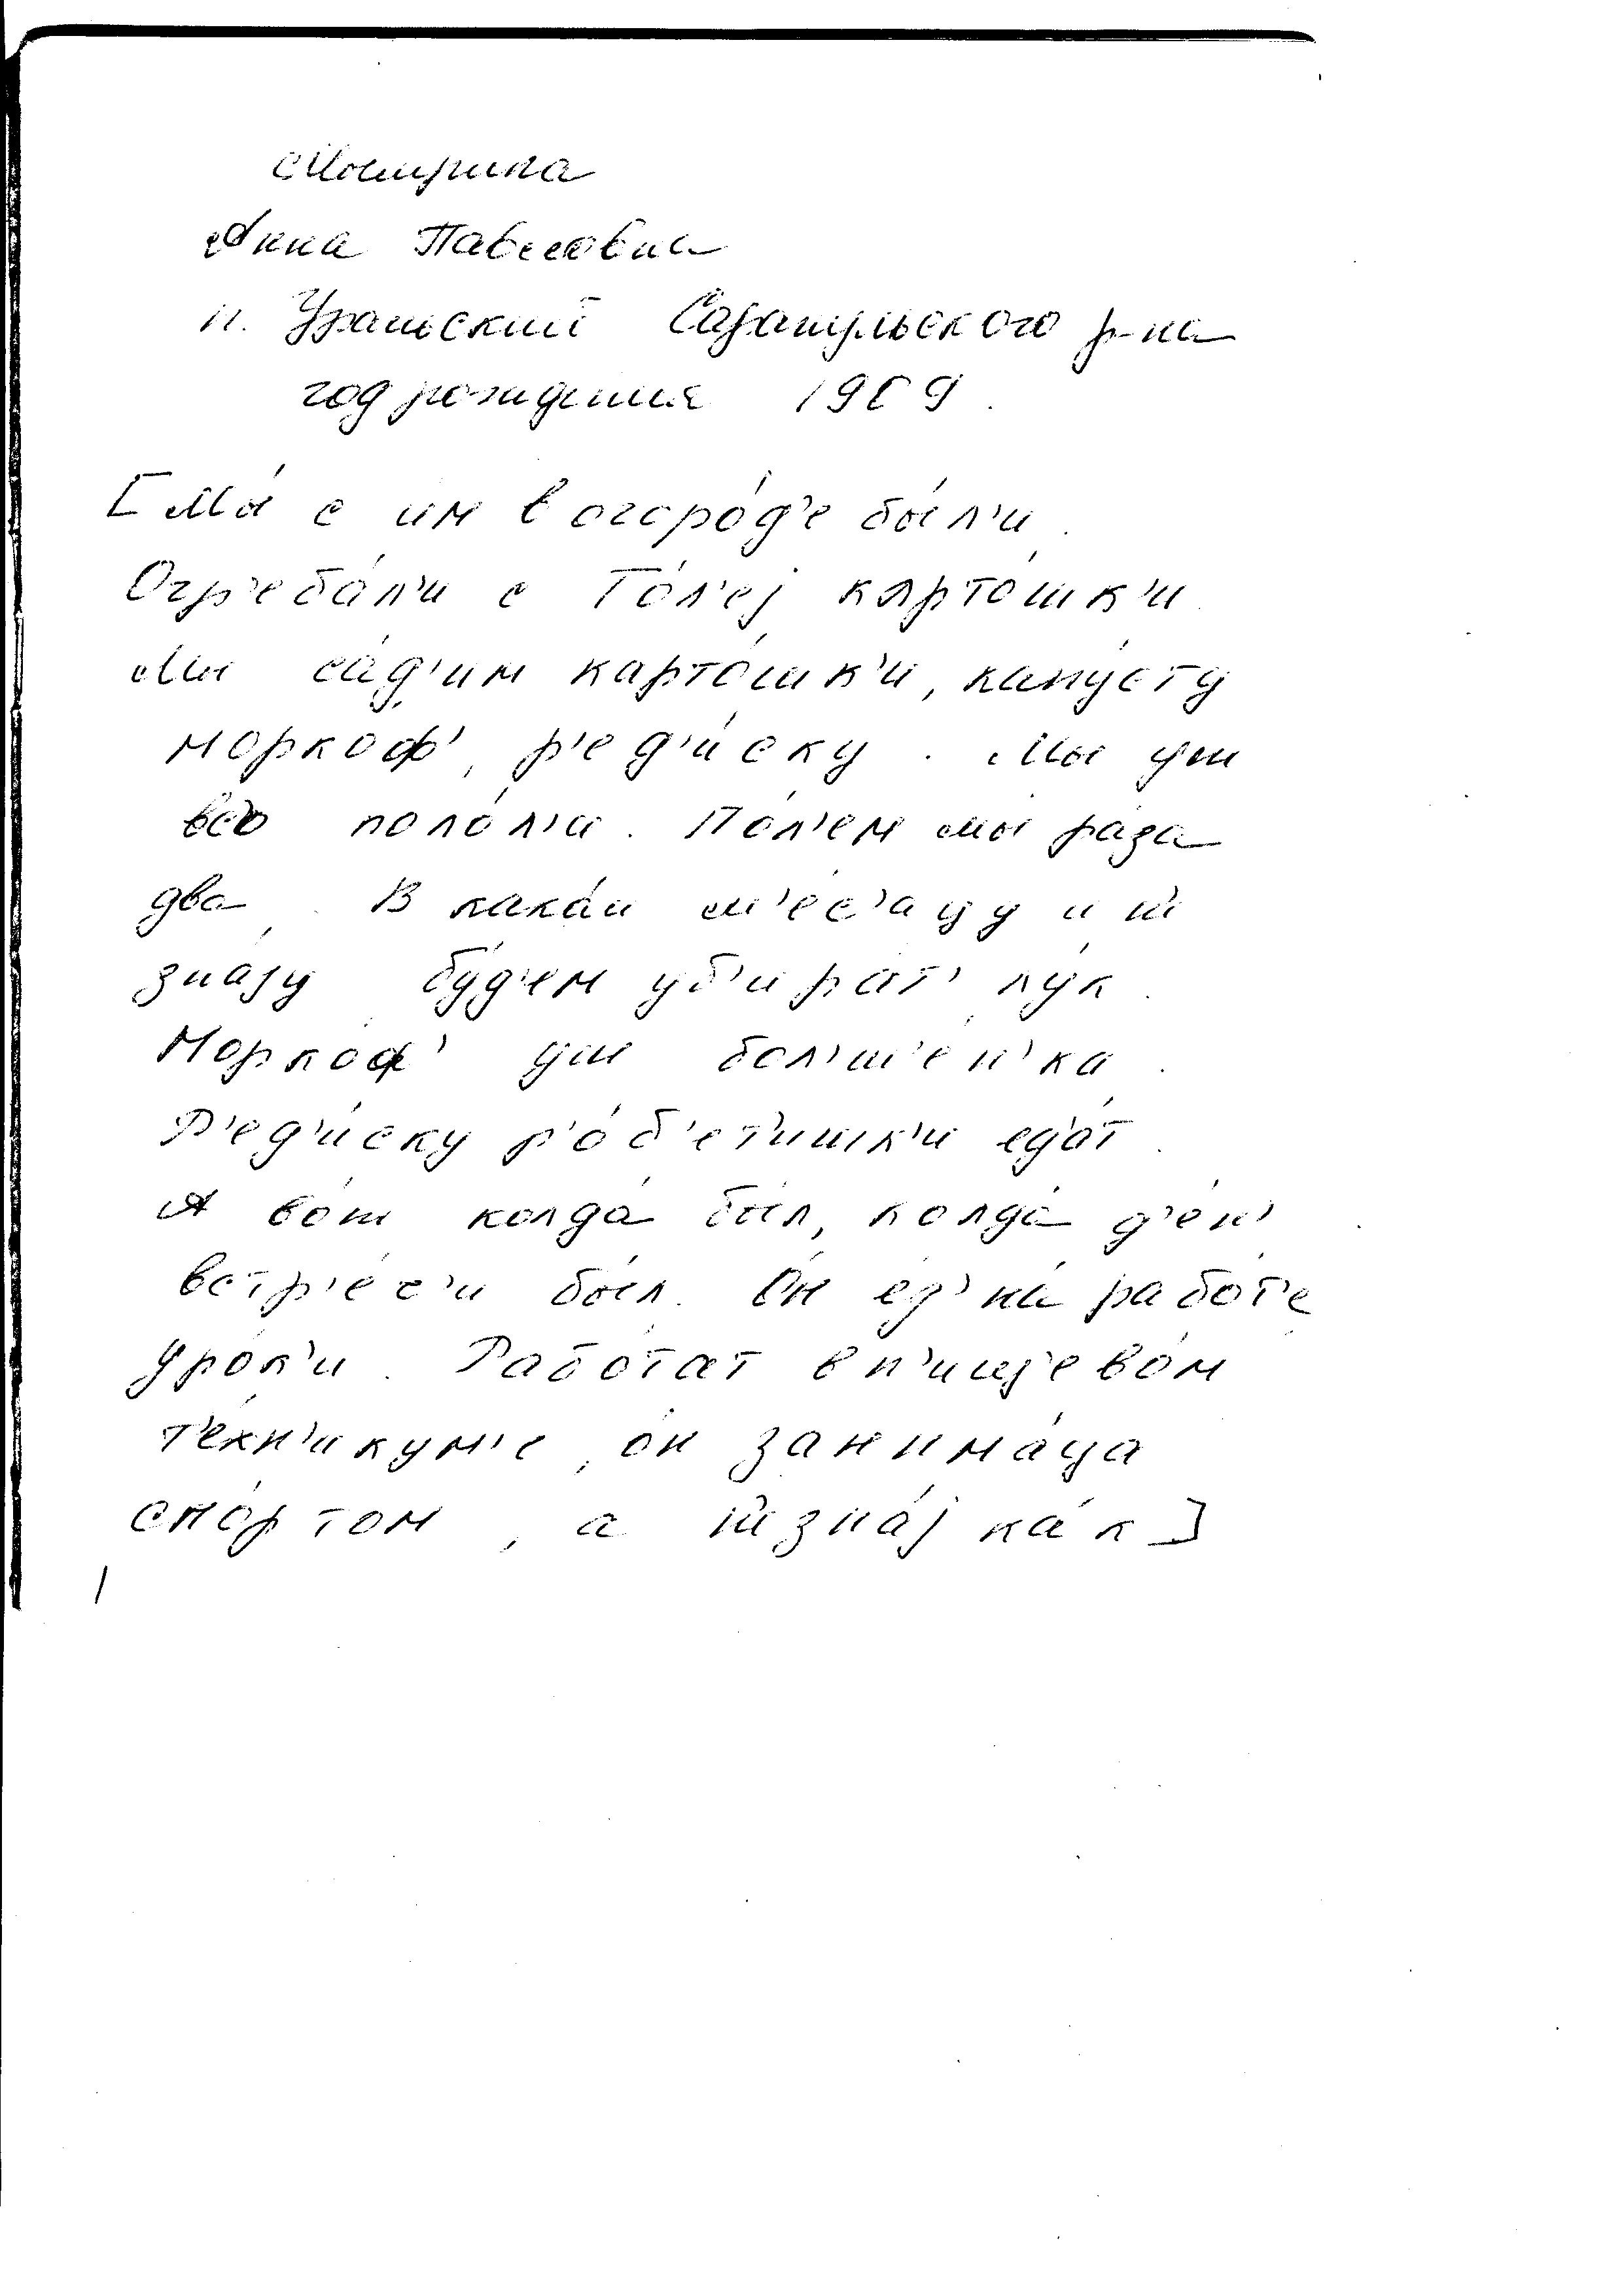 Мотрина
Анна Павловна
п. Уральский Сарапульского р-на
год рождения 1909.
[Мы́ с им в огоро́д'е бы́л'и.
Огр'еба́л'и с То́л'еј карто́шк'и.
Мы са́д'им карто́шк'и, капу́сту
морко́ф', р'ед'и́ску. Мы уш
всо поло́л'и. По́л'ем мы́ ра́за
два. В како́й м'е́с'ацу и н'
зна́ју бу́д'ем уб'ира́т' лу́к.
Морко́ф' уш бол'ш'е́н'ка.
Р'ед'и́ску р'о́б'ет'ишк'и ед'а́т.
А во́т колда́ бы́л, колда́ д'е́н'
встр'е́с'и бы́л. О́н ез' на́ рабо́т'е
уро́к'и. Рабо́тат в п'ищ'ево́м
т'е́хн'икум'е, о́н занима́ца
спо́ртом, а н'зна́ј ка́к]